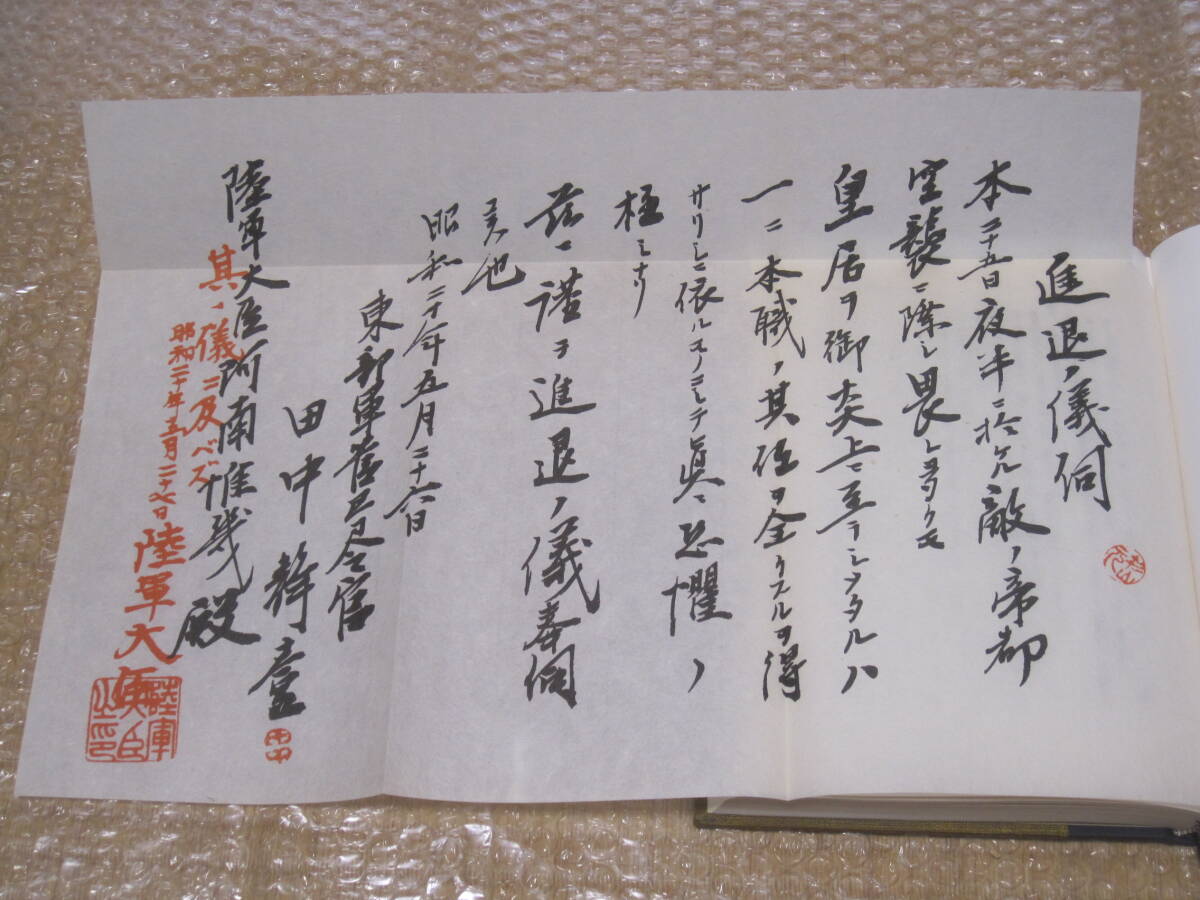 進退ノ儀伺
本二十五日夜半ニ於ケル敵ノ帝都
空襲ニ際シ畏レ多クモ
皇居ヲ御炎上ニ至ラシメタルハ
一ニ本職ノ其任ヲ全ウスルヲ得
サリシニ依ルモノニシテ眞ニ恐懼ノ
極ミナリ
茲ニ謹テ進退ノ儀奉伺
候也
昭和二十年五月二十六日
東部軍管区司令官
田中静壹
田中
陸軍大臣阿南惟幾殿
其ノ儀ニ及バズ
昭和二十年五月二十七日 陸軍大臣
陸軍大臣之印